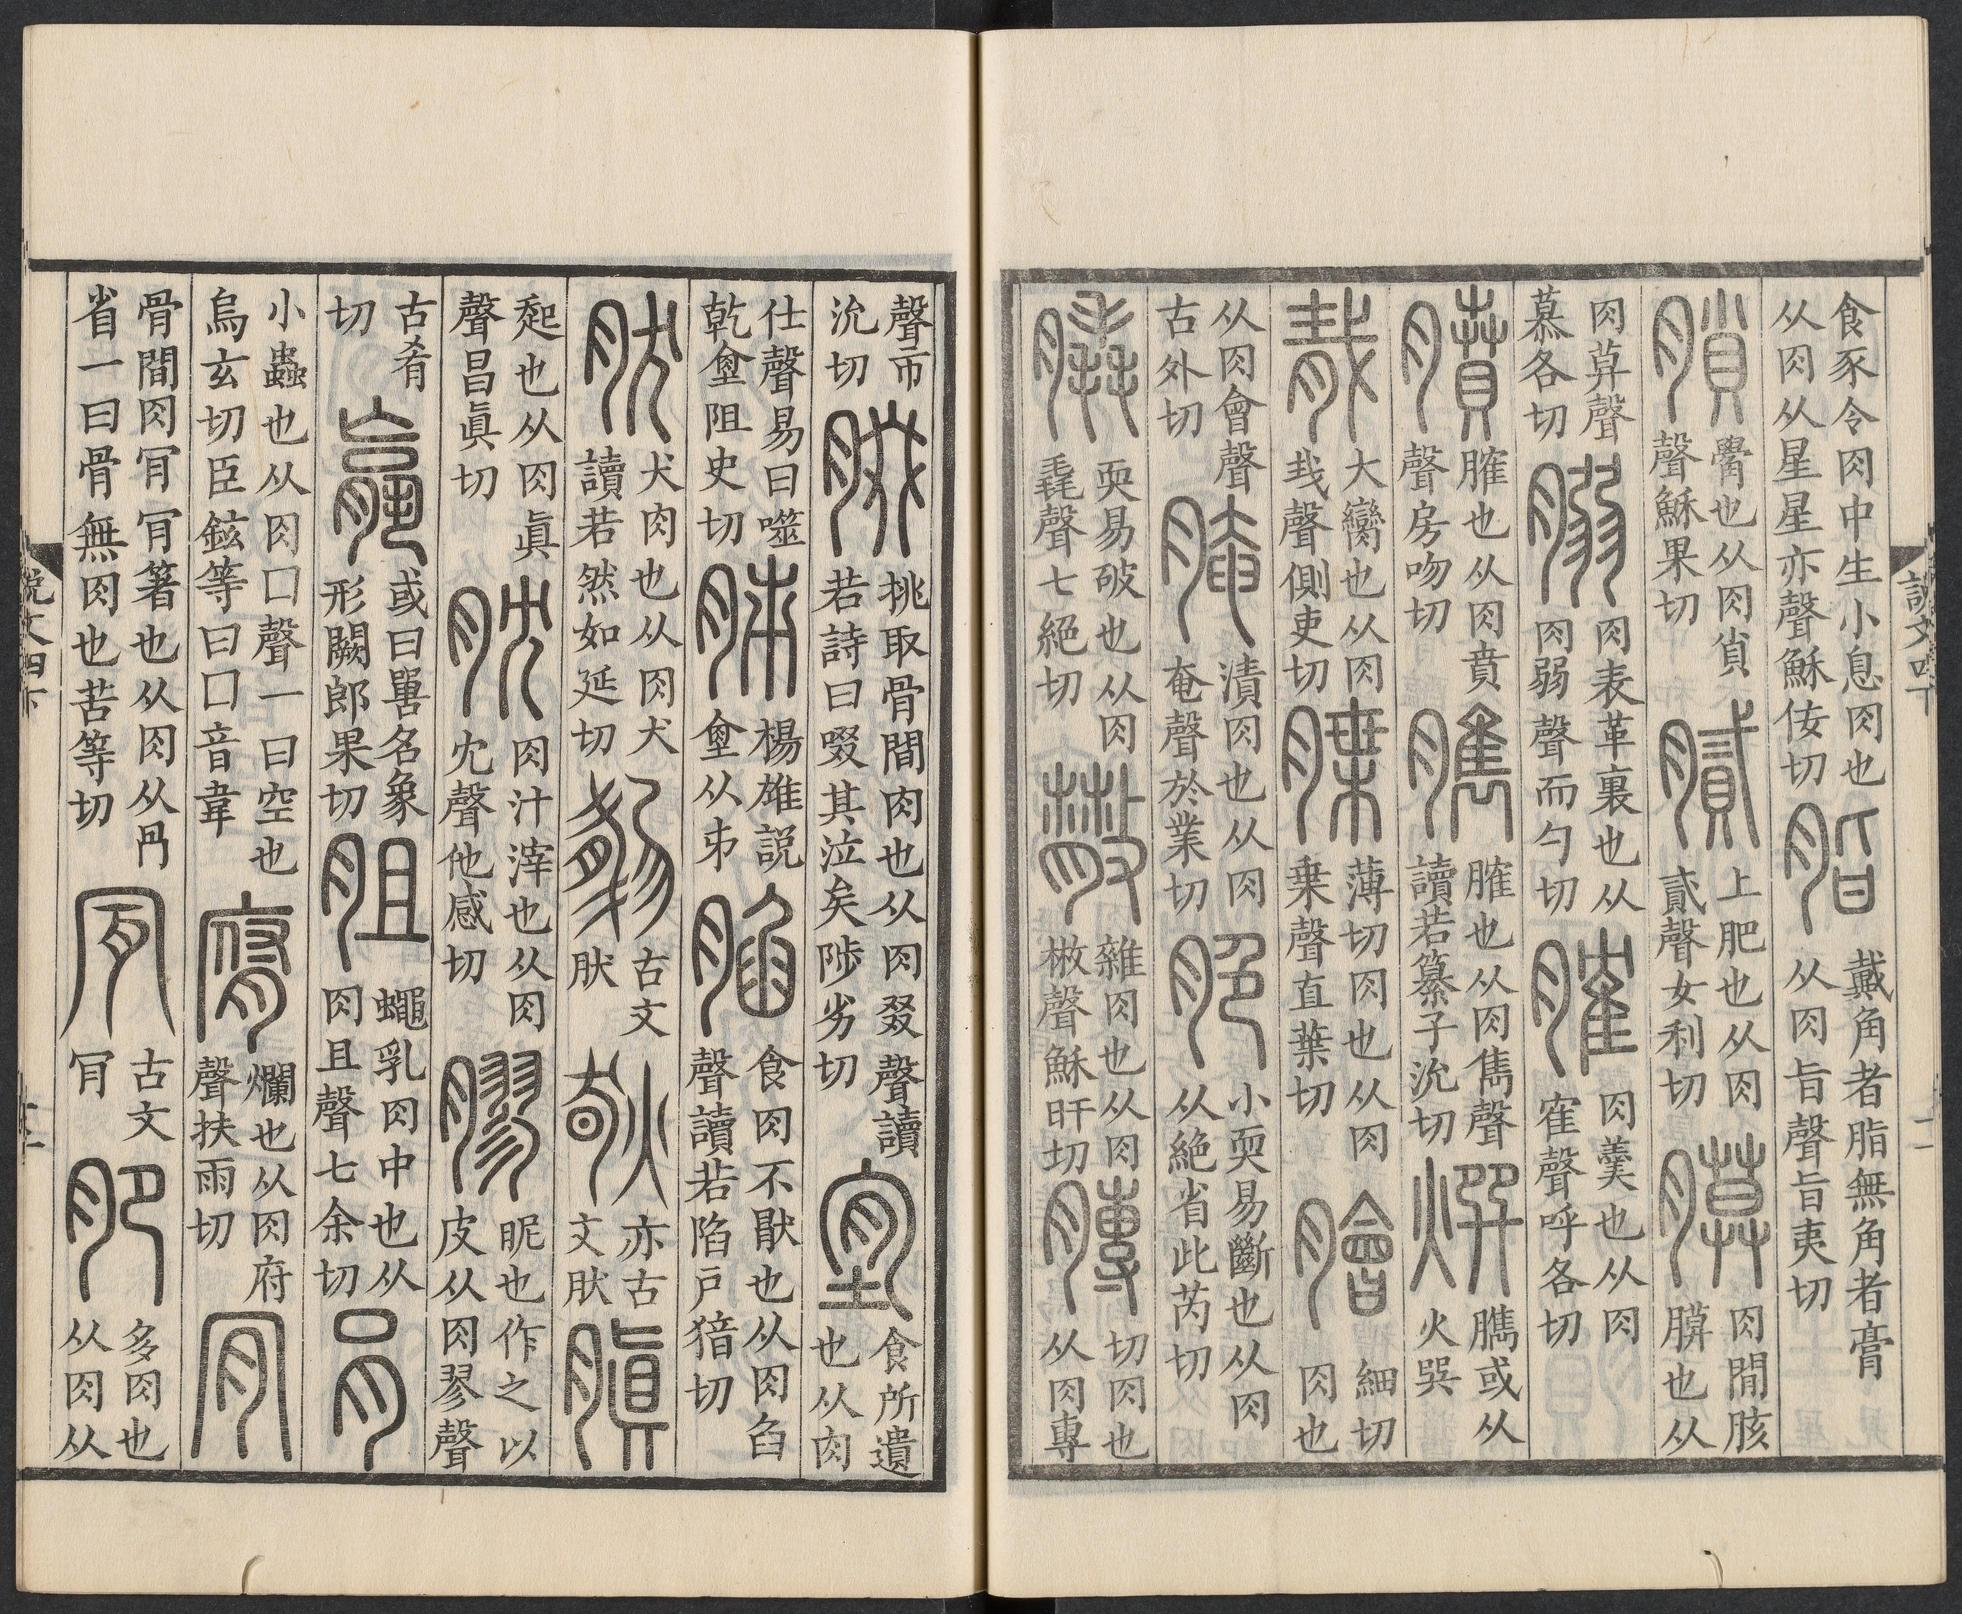 說文四下 十一
食豕令肉中生小息肉也
从肉从星星亦聲穌佞切
脂
戴角者脂無角者膏
从肉旨聲旨夷切
䚇也从肉𧴪
聲穌果切
膩
上肥也从肉
貳聲女利切
膜
肉間胲
膜也从
肉莫聲
慕各切
䐞
肉表革裏也从
肉弱聲而勺切
臛
肉羹也从肉
隺聲呼各切
膹
臛也从肉賁
聲房吻切
臇
臛也从肉雋聲
讀若纂子沇切
臇或从
火巽
胾
大臠也从肉
𢦏聲側吏切
牒
薄切肉也从肉
枼聲直葉切
膾
細切
肉也
从肉會聲
古外切
腌
漬肉也从肉
奄聲於業切
脃
小耎易斷也从肉
从絕省此芮切
膬
耎易破也从肉
毳聲七絕切
雜肉也从肉
㪔聲穌旰切
膞
切肉也
从肉專
聲市
沇切
腏
挑取骨間肉也从肉叕聲讀
若詩曰啜其泣矣陟劣切
𦞅
食所遺
也从肉
仕聲易曰噬
乾𦞅阻史切
胏
楊雄說
𦞅从𠂔
䐄
食肉不猒也从肉臽
聲讀若陷戶猪切
肰
犬肉也从肉犬
讀若然如延切
古文
肰
亦古
文肰
䐜
起也从肉眞
聲昌眞切
肬
肉汁滓也从肉
冘聲他感切
膠
昵也作之以
皮从肉翏聲
古肴
切
或曰嘼名象
形闕郎果切
胆
蠅乳肉中也从
肉且聲七余切
肙
小蟲也从肉口聲一曰空也
烏玄切臣鉉等曰口音韋
腐
爛也从肉府
聲扶雨切
肎
骨間肉肎肎箸也从肉从冎
省一曰骨無肉也苦等切
古文
肎
肥
多肉也
从肉从
說文四下 十一